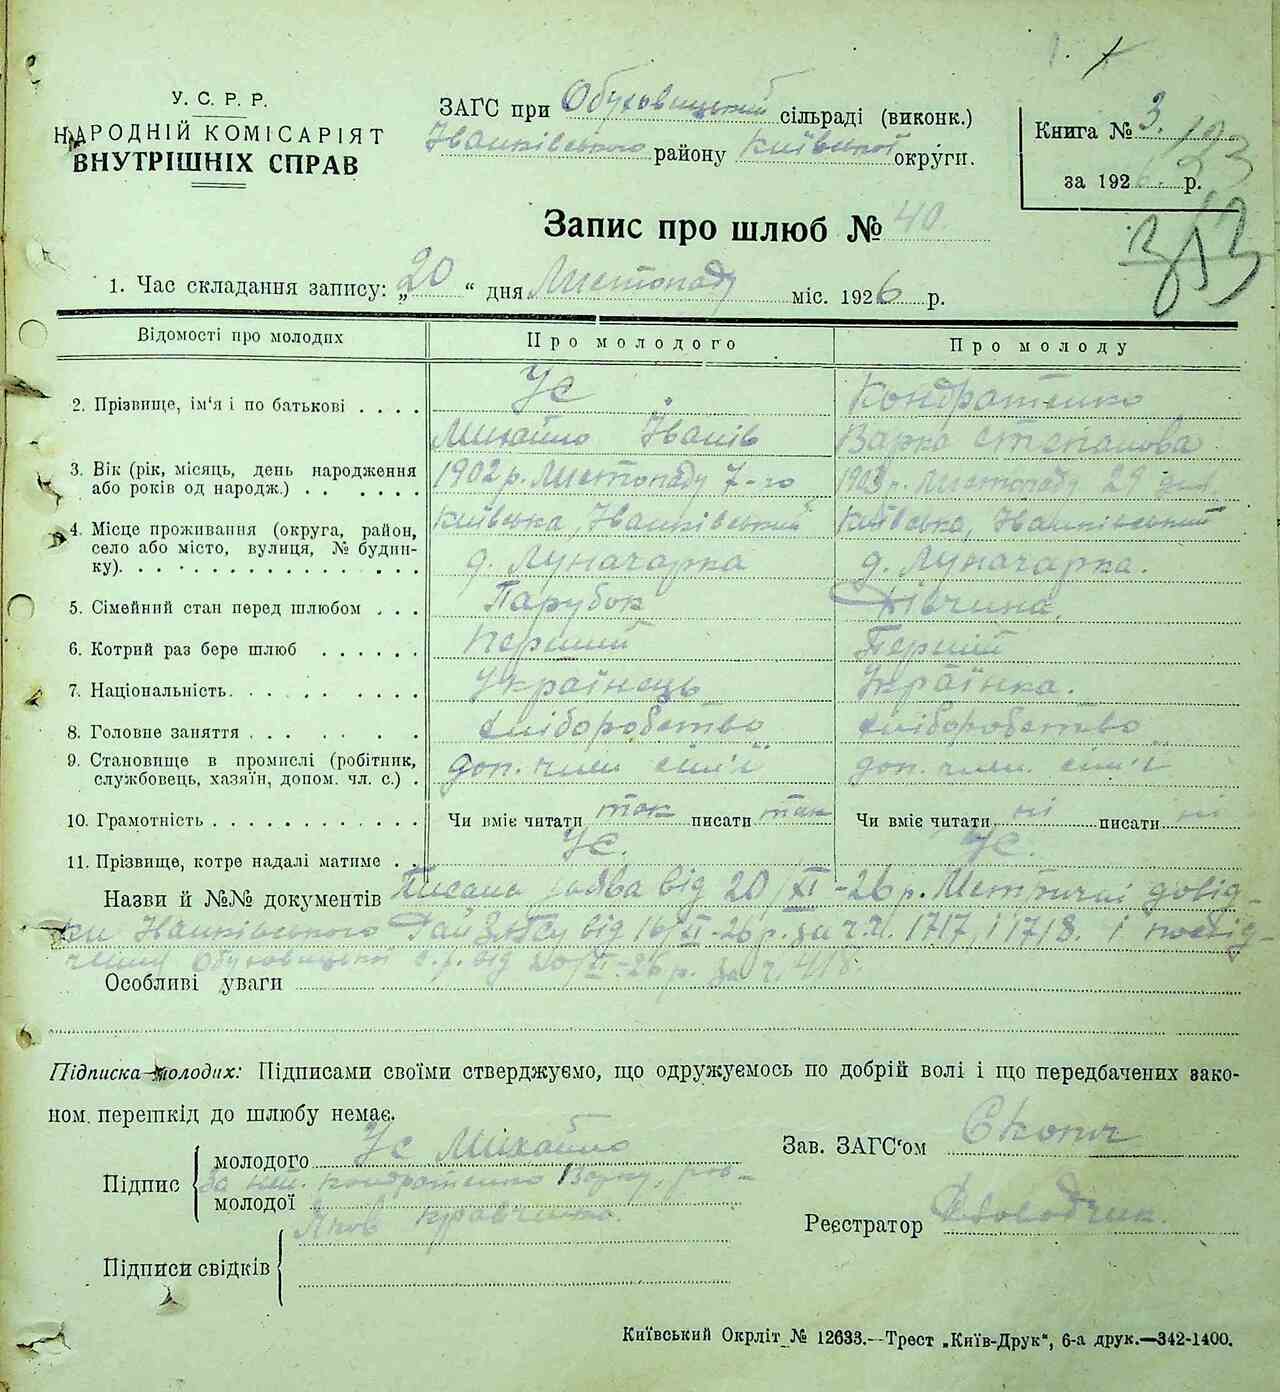 У. С. Р. Р.
НАРОДНІЙ КОМІСАРІЯТ
ВНУТРІШНІХ СПРАВ
ЗАГС при Обуховицькій сільраді (виконк.)
Іванківського району Київської округи.
Книга № 3.
за 1926 р.
Запис про шлюб № 40.
1. Час складання запису: „20“ дня Листопаду міс. 1926 р.
Відомості про молодих Про молодого Про молоду
2. Прізвище, ім'я і по батькові . . . . Ус Кондратенко
Михайло Іванів Варка Степанова
3. Вік (рік, місяць, день народження або років од народж.) . . . . . . . 1902 р. Листопаду 7-го 1903 р. Листопаду 29 дня
4. Місце проживання (округа, район, село або місто, вулиця, № будинку). Київська, Іванківський Київська, Іванківський
д. Луначарка д. Луначарка.
5. Сімейний стан перед шлюбом . . . Парубок Дівчина.
6. Котрий раз бере шлюб . . . . . . Перший Перший
7. Національність. . . . . . . . . . Українець Українка.
8. Головне заняття . . . . . . . . хліборобство хліборобство
9. Становище в промислі (робітник, службовець, хазяїн, допом. чл. с.) . доп. член сім'ї доп. член. сім'ї
10. Грамотність . . . . . . . . . . . Чи вміє читати так писати так Чи вміє читати ні писати ні
11. Прізвище, котре надалі матиме . . Ус. Ус.
Назви й №№ документів Писана заява від 20/XI-26 р. Метричні довід-
ки Іванківського від 16/XI-26 р. за ч.ч. 1717, і 1718. і посвід-
чення Обуховицької с.р. від 20/XI-26 р. за ч. 418.
Особливі уваги
Підписка молодих: Підписами своїми стверджуємо, що одружуємось по добрій волі і що передбачених зако-
ном перешкід до шлюбу немає.
Підпис
молодого Ус Михайло
молодої За неп. Кондратенко Варку, роз-
Яків Кравченко.
Підписи свідків
Зав. ЗАГС'ом
Реєстратор
Київський Окрліт № 12633.—Трест „Київ-Друк“, 6-а друк.—342-1400.